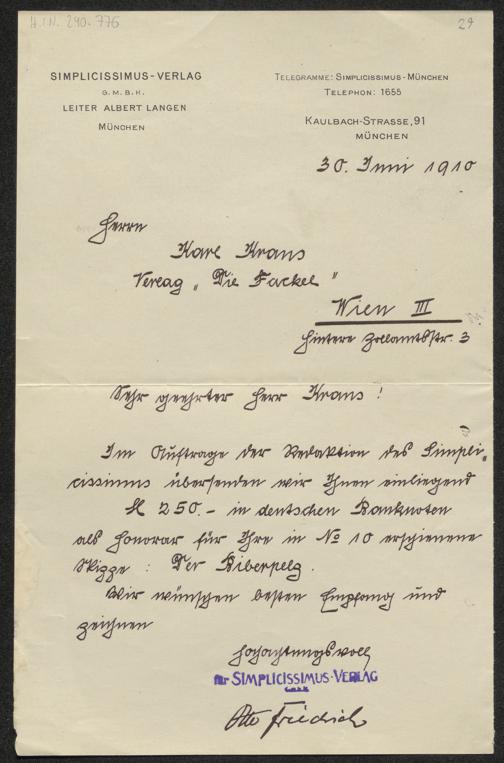 H.I.N. 240.776
29
SIMPLICISSIMUS-VERLAG
G.M.B.H.
LEITER ALBERT LANGEN
MÜNCHEN
TELEGRAMME: SIMPLICISSIMUS-MÜNCHEN
TELEPHON: 1655
KAULBACH-STRASSE, 91
MÜNCHEN
30. Juni 1910
Herrn
Karl Kraus
Verlag „Die Fackel"
Wien III
Hintere Zollamtsstr. 3
Sehr geehrter Herr Kraus!
Im Auftrage der Redaktion des Simpli-
cissimus übersenden wir Ihnen einliegend
M 250.- in deutschen Banknoten
als Honorar für Ihre in No 10 erschienene
Skizze: Der Biberpelz.
Wir wünschen besten Empfang und
zeichnen
hochachtungsvoll
für SIMPLICISSIMUS-VERLAG
G.m.b.H.
Otto Friedrich